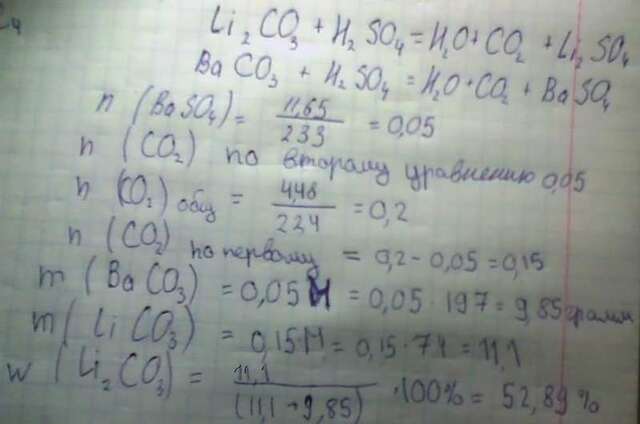 Li₂CO₃ + H₂SO₄ = H₂O + CO₂ + Li₂SO₄
BaCO₃ + H₂SO₄ = H₂O + CO₂ + BaSO₄
n (BaSO₄) = 11,65 / 233 = 0,05
n (CO₂) по второму уравнению 0,05
n (CO₂) общ = 4,48 / 22,4 = 0,2
n (CO₂) по первому = 0,2 - 0,05 = 0,15
m (BaCO₃) = 0,05 M = 0,05 · 197 = 9,85 грамм
m (LiCO₃) = 0,15·M = 0,15 · 74 = 11,1
w (Li₂CO₃) = 11,1 / (11,1 + 9,85) · 100% = 52,89 %